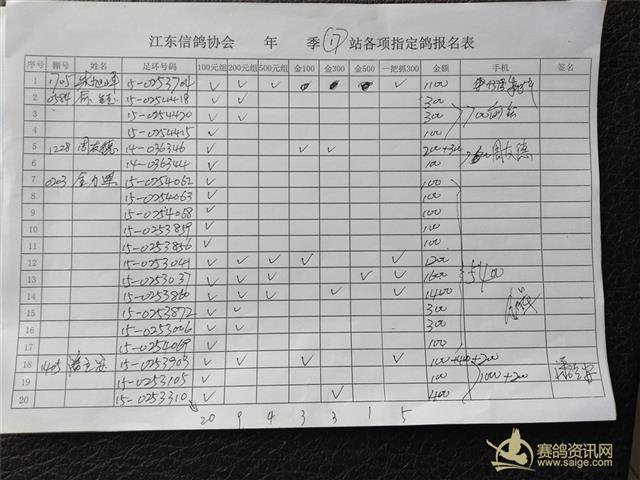 江东信鸽协会 年 季 ⑰ 站各项指定鸽报名表
序号 棚号 姓名 足环号码 100元组 200元组 500元组 金100 金300 金500 一把抓300 金额 手机 签名
1 1705 15-0253704 ✓ ✓ ✓ ✓ 1100
2 0584 15-0254418 ✓ ✓ 300
3 15-0254420 ✓ ✓ 300
4 15-0254415 ✓ 100
5 1228 周友德 14-036346 ✓ ✓ ✓ 200+300 周友德
6 14-036344 ✓ 100
7 0203 15-0254062 ✓ 100
8 15-0254063 ✓ 100
9 15-0254068 ✓ 100
10 15-0253859 ✓ 100
11 15-0253856 ✓ 100
12 15-0253049 ✓ ✓ ✓ ✓ ✓ 1200
13 15-0253037 ✓ ✓ ✓ ✓ ✓ 1600 5400
14 15-0253860 ✓ ✓ ✓ ✓ ✓ 1400
15 15-0253872 ✓ ✓ 300
16 15-0253046 ✓ ✓ 300
17 15-0254069 ✓ 100
18 15-0253903 ✓ ✓ ✓ ✓ 100+400+200
19 15-0253105 ✓ 100 1000+200
20 15-0253310 ✓ ✓ 400
20 9 4 3 3 1 5
赛鸽资讯网
www.saige.com